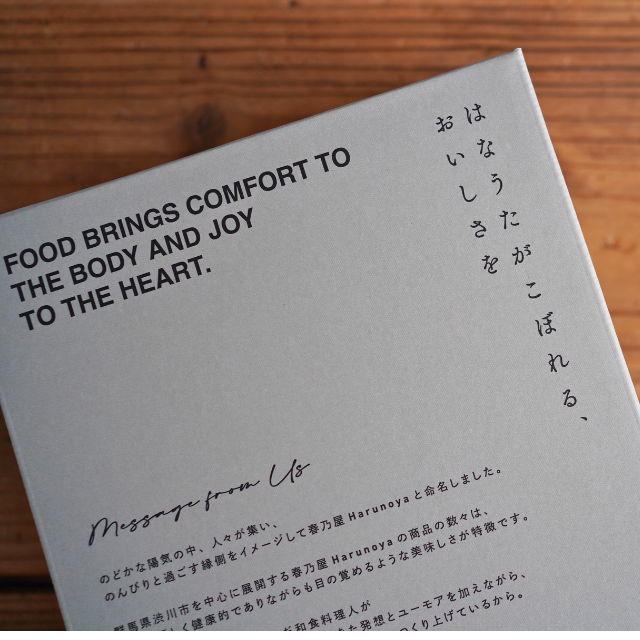 FOOD BRINGS COMFORT TO
THE BODY AND JOY
TO THE HEART.
はなうたがこぼれる、
おいしさを
Message from Us
のどかな陽気の中、人々が集い、
のんびりと過ごす縁側をイメージして春乃屋 Harunoya と命名しました。
群馬県渋川市を中心に展開する春乃屋 Harunoya の商品の数々は、
く健康的でありながらも目の覚めるような美味しさが特徴です。
和食料理人が
発想とユーモアを加えながら、
くり上げているから。